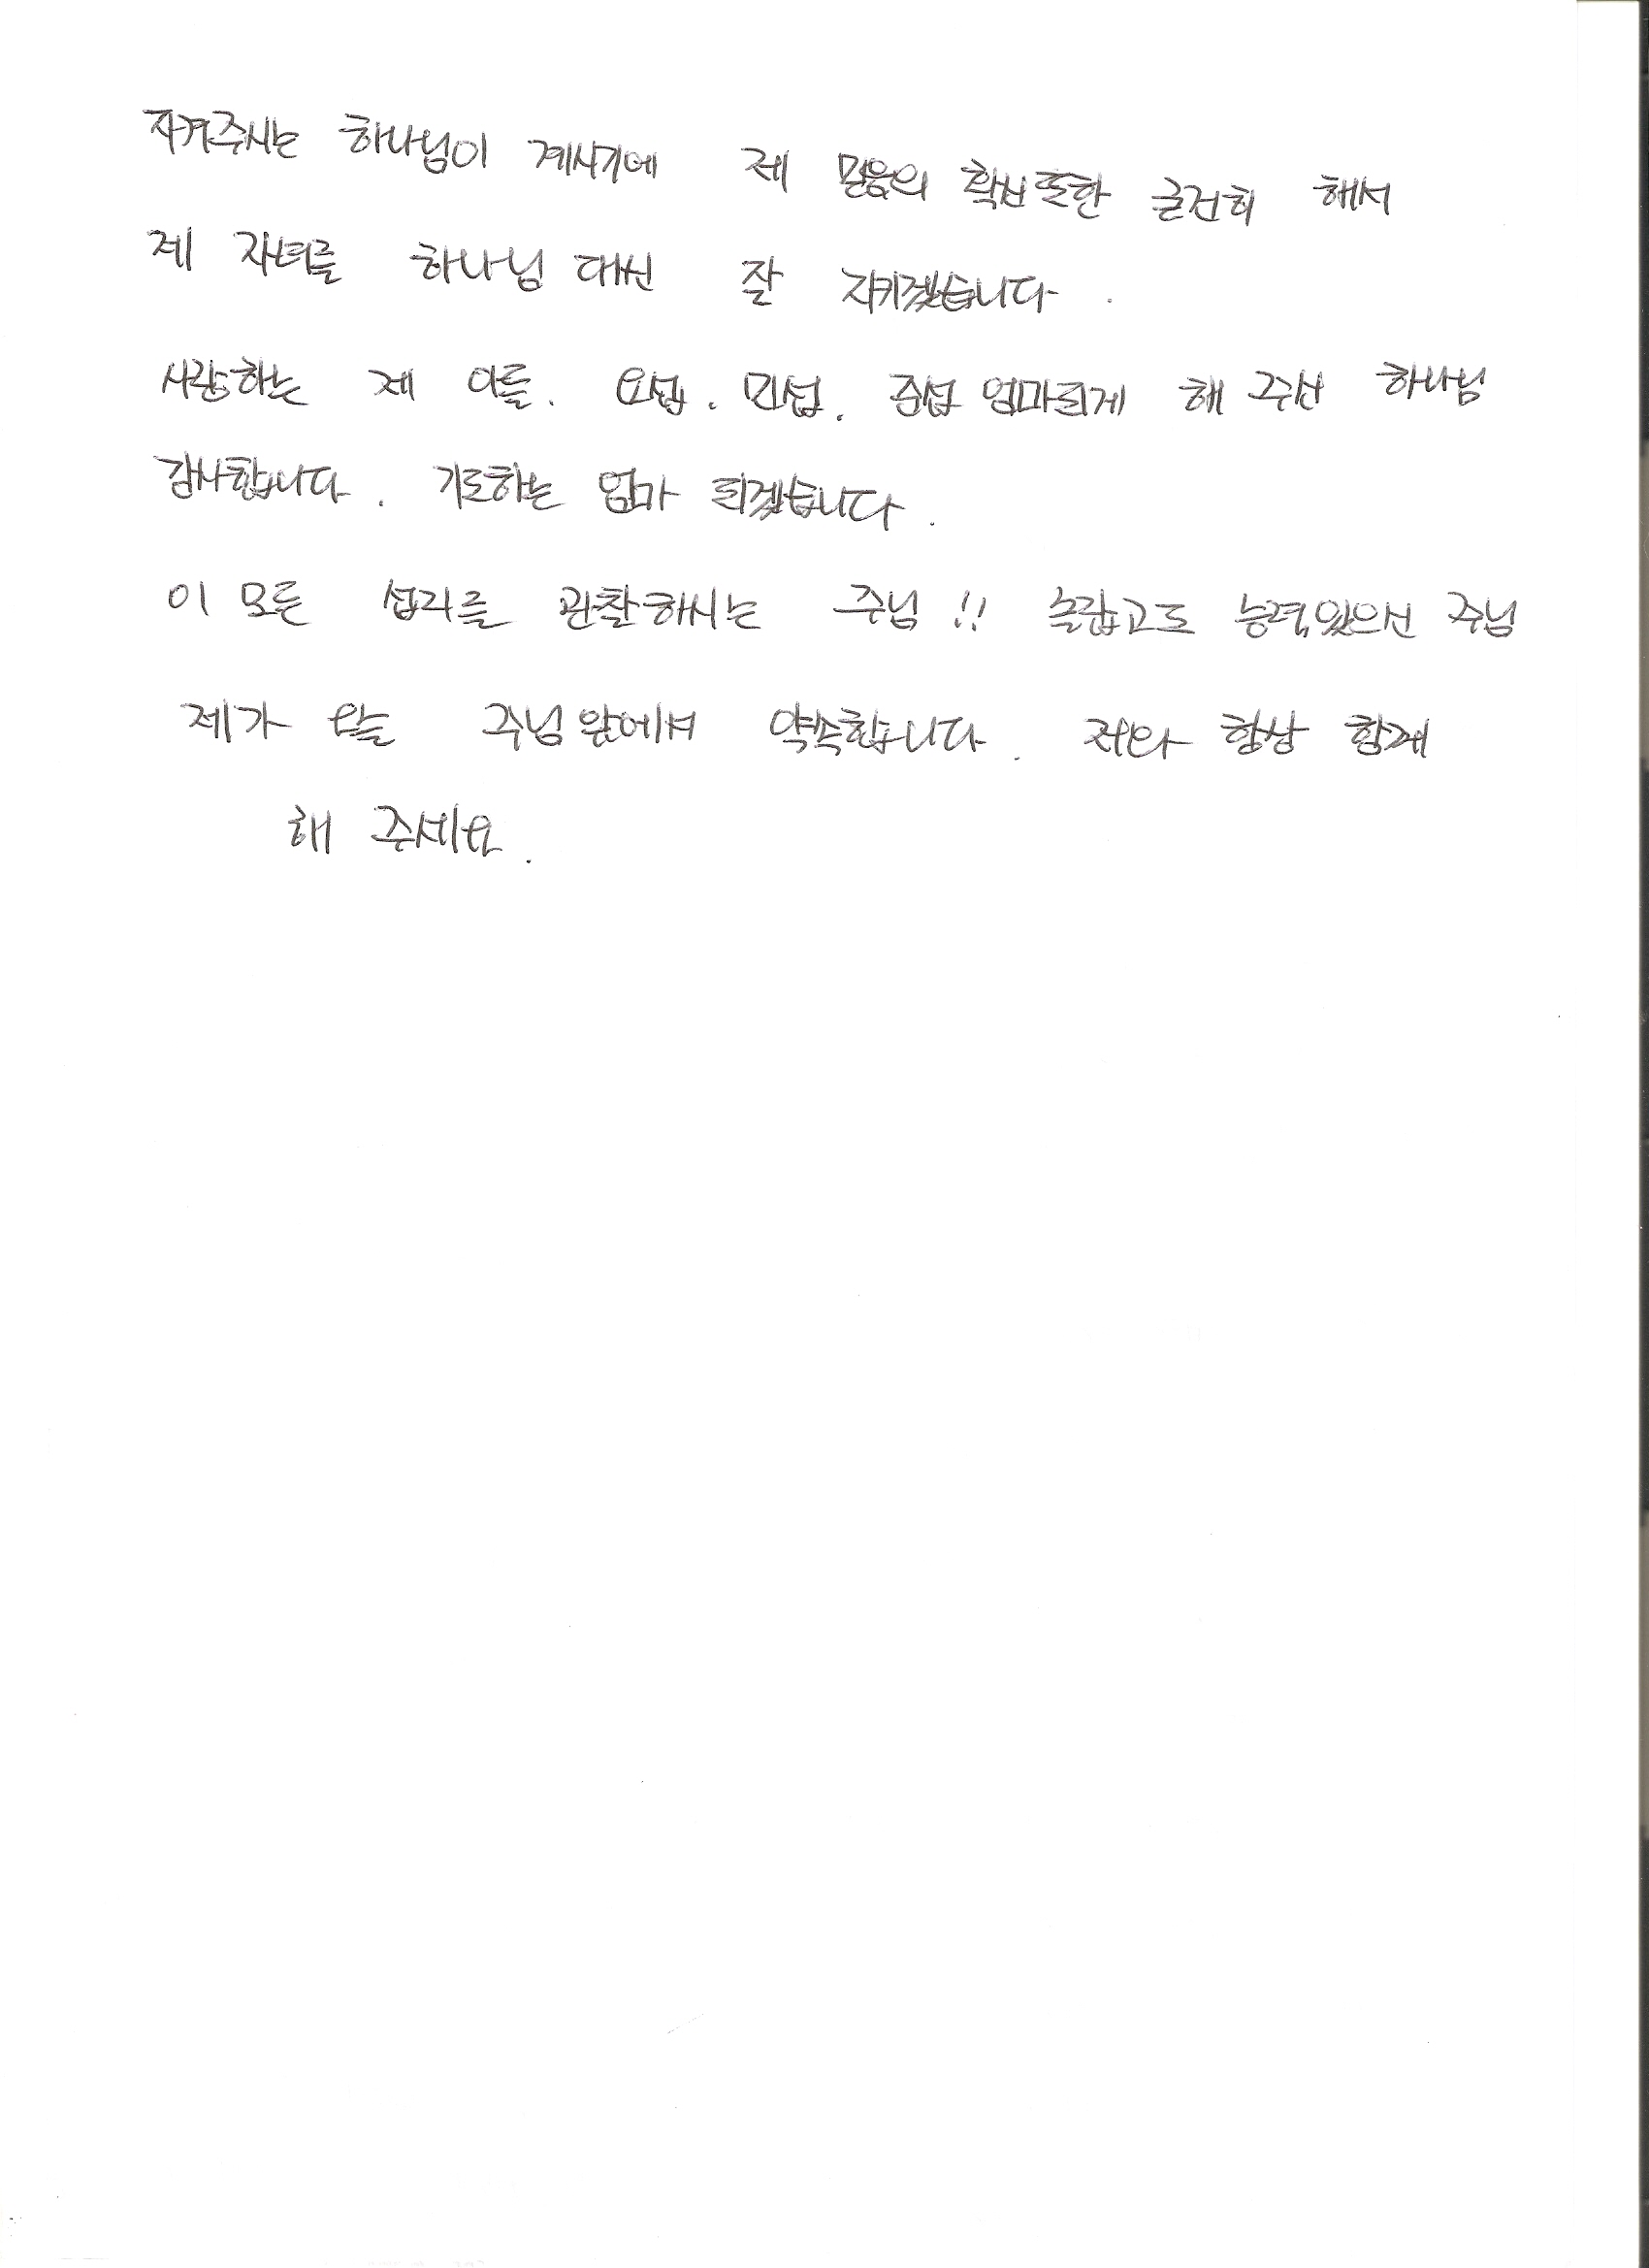 지켜주시는 하나님이 계시기에 제 믿음의 확신 또한 굳건히 해서
제 자녀를 하나님 대신 잘 지키겠습니다.
사랑하는 제 아들. 요셉. 민섭. 준섭 엄마되게 해 주신 하나님
감사합니다. 기도하는 엄마 되겠습니다.
이 모든 섭리를 관찰하시는 주님!! 놀랍고도 능력있으신 주님
제가 오늘 주님 앞에서 약속합니다. 저와 항상 함께
해 주세요.